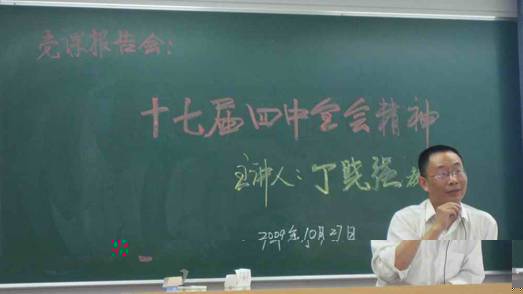 党课报告会:
十七届四中全会精神
主讲人:丁晓强
2009年10月27日